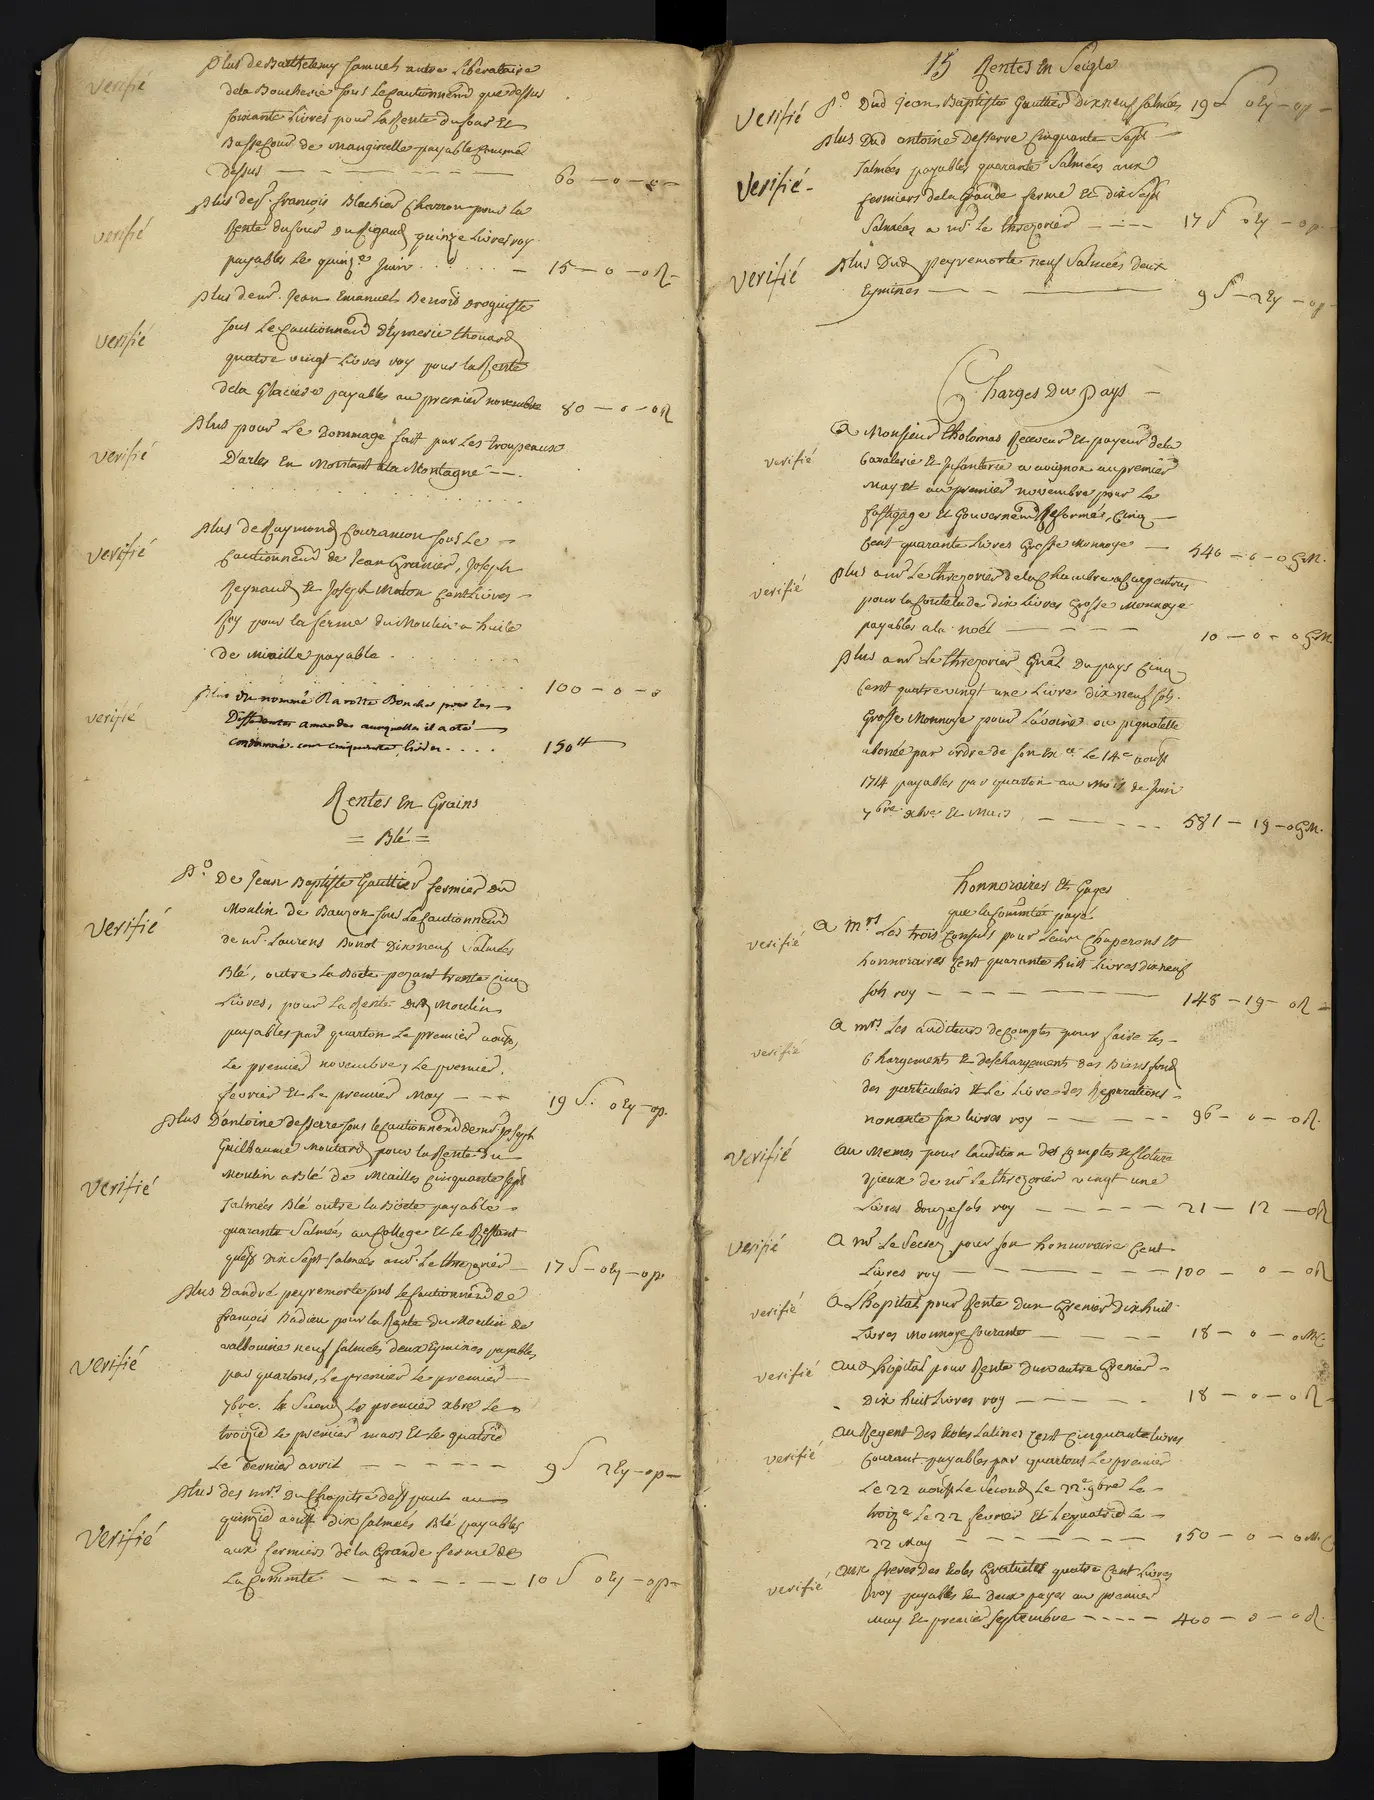 Plus de Barthelemy Samuel autre Liberataire
verifié
dela Boucherie sous Le Cautionnend que dessus
soixante Livres pour La Rente du four Et
Bassecour de Mangirelle payable Comme
Dessus — 60 — o — o —
Plus de Sr. françois Blachier Charron pour La
verifié
Rente du four du Rigaud quinze Livres roy
payables Le quinze Juin . . . — 15 — o — o R —
Plus de mr. Jean Emanuel Benoit Droguiste
verifié
sous Le Cautionnend d'Eymerie thouard
quatre vingt Livres roy pour La Rente
dela Glaciere payables au premier novembre 80 — o — o R
Plus pour Le Dommage fait par Les troupeaux
verifié
D'arles En Montant a la Montagne — —
Plus de Raymond Couranion sous Le
verifié
Cautionnend de Jean Granier, Joseph
Reynaud Et Joseph Maton Cent Livres
Roy pour La ferme du Moulin a huile
de Miaille payable . . . .
100 — o — o
Plus du nommé Ravotte Boucher pour Les
verifié
Differentes amandes auxquelles il a eté
Condamné cent cinquante Livres . . . . 150 tt
Rentes En Grains
= Blé =
Po. De Jean Baptiste Gaultier fermier du
verifié
Moulin de Bauzon sous Le Cautionnend
de mr. Laurens Bonot Dixneuf Salmées
Blé, outre La Boete pezant trante Cinq
Livres, pour La Rente dud Moulin
payables par quarton Le premier aoust,
Le premier novembre, Le premier
fevrier Et Le premier May — — — 19 S. o Ey — o p.
Plus D'antoine desserre sous Le Cautionnend de mr. Joseph
Guilhaume Moutard pour La Rente du
verifié
Moulin a blé de Miailles Cinquante Sept
Salmées Blé outre La Boete payable
quarante Salmées au College Et Le Restant
quest Dix Sept Salmées au sr. Le threzorier — 17 S — o Ey — o p.
Plus D'andré peyremorte sous Le Cautionnend de
françois Badieu pour La Rente du Moulin de
valbonine neuf Salmées deux Eymines payables
verifié
par quartons, Le premier Le premier
7bre. Le Second Le premier xbre Le
troizie Le premier mars Et Le quatrie
Le dernier avril — 9 S 2 Ey — o p —
Plus des mrs. du Chapitre dess paul au
quinzie aoust dix Salmées Blé payables
verifié
aux fermiers de la Grande ferme de
La Commté — 10 S o Ey — o p —
15 Rentes En Seigle
Po. Dud Jean Baptiste Gaultier Dixneuf Salmées 19 S o Ey — o p —
verifié
Plus Dud antoine Desserre Cinquante Sept
Salmées payables quarante Salmées aux
verifié -
fermiers dela Grande ferme Et dix Sept
Salmées a mr. Le threzorier — 17 S o Ey — o p.
Plus Dud peyremorte neuf Salmées deux
verifié
Eymines — 9 S — 2 Ey — o p
Charges Du Pays —
A Monsieur tholomas Receveur Et payeur dela
verifié
Cavalerie Et Infanterie a avignon au premier
May Et au premier novembre pour Le
fastigage Et Gouvernend Reformés, Cinq
Cent quarante Livres Grosse Monnoye — 540 — o — o G.M.
Plus au sr Le threzorier dela Chambre a Carpentras
verifié
pour La Coutelade dix Livres Grosse Monnoye
payables a la noël — 10 — o — o G.M.
Plus au sr. Le threzorier Gnãl du pays Cinq
Cent quatre vingt une Livre dix neuf sols
Grosse Monnoye pour L'avoine ou pignotelle
abonée par ordre de son Ex ce. Le 14e aoust
1714 payables par quarton au Mois de Juin
7bre. xbre. Et Mars — 581 — 19 — o G.M.
honnoraires Et Gages
que La Commté paye.
A Mrs Les trois Consuls pour Leur Chaperons Et
verifié
honnoraires Cent quarante huit Livres dixneuf
sols roy — 148 — 19 — o R —
A mrs. Les auditeurs de Comptes pour faire Les
verifié
Chargements Et deschargements des Biens fond
des particuliers Et Le Livre des Reparations
nonante six Livres roy — 96 — o — o R.
Au Memes pour Laudition des Comptes Et Cloture
verifié
dyceux de mr. Le threzorier vingt une
Livres douze sols roy — 21 — 12 — o R
A mr. Le Secrez pour son honnoraire Cent
verifié
Livres roy — 100 — o — o R
A L'hopital pour Rente dun Grenier dixhuit
verifié
Livres Monnoye Courante — 18 — o — o M.C.
Aud hopital pour Rente dun autre Grenier
verifié
dix huit Livres roy — 18 — o — o R —
Au Regent des Ecoles Latines Cent Cinquante Livres
verifié
Courant payables par quartons Le premier
Le 22 aoust Le Second Le 22e. 9bre Le
troize Le 22 fevrier Et Le quatrie Le
22 May — 150 — o — o M.C.
Aux freres des Ecoles Gratuites quatre Cent Livres
verifié
roy payables En deux payes au premier
May Et premier Septembre — 400 — o — o R.